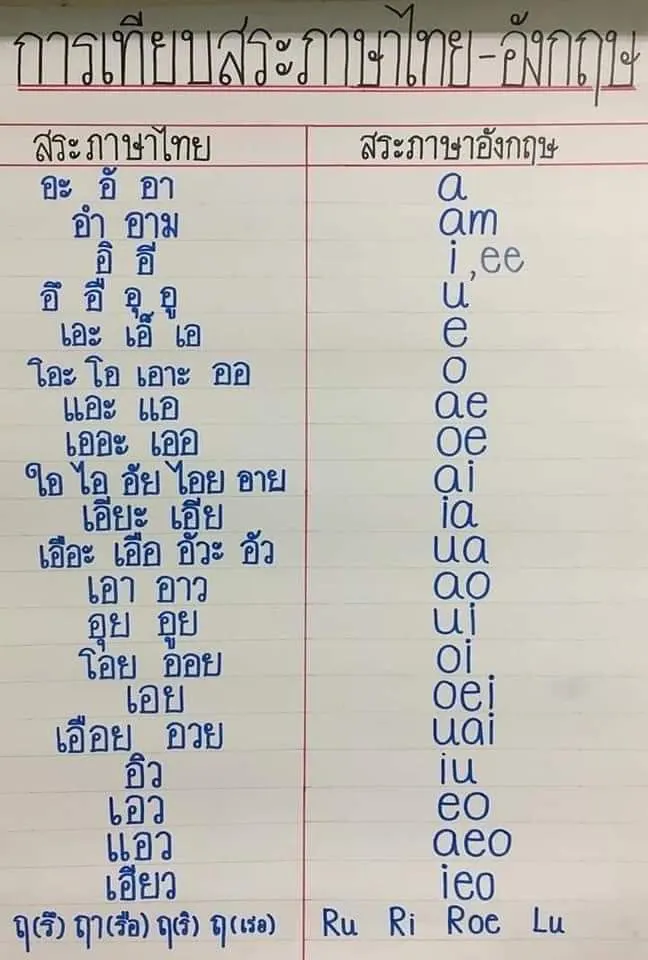 การเทียบสระภาษาไทย-อังกฤษ
สระภาษาไทย สระภาษาอังกฤษ
อะ อั อา a
อำ อาม am
อิ อี i ,ee
อึ อื อุ อู u
เอะ เอ็ เอ e
โอะ โอ เอาะ ออ o
แอะ แอ ae
เออะ เออ oe
ใอ ไอ อัย ไอย อาย ai
เอียะ เอีย ia
เอือะ เอือ อัวะ อัว ua
เอา อาว ao
อุย อูย ui
โอย ออย oi
เอย oei
เอือย อวย uai
อิว iu
เอว eo
แอว aeo
เอียว ieo
ฤ(รึ) ฤา(รือ) ฤ(ริ) ฤ(เรอ) Ru Ri Roe Lu